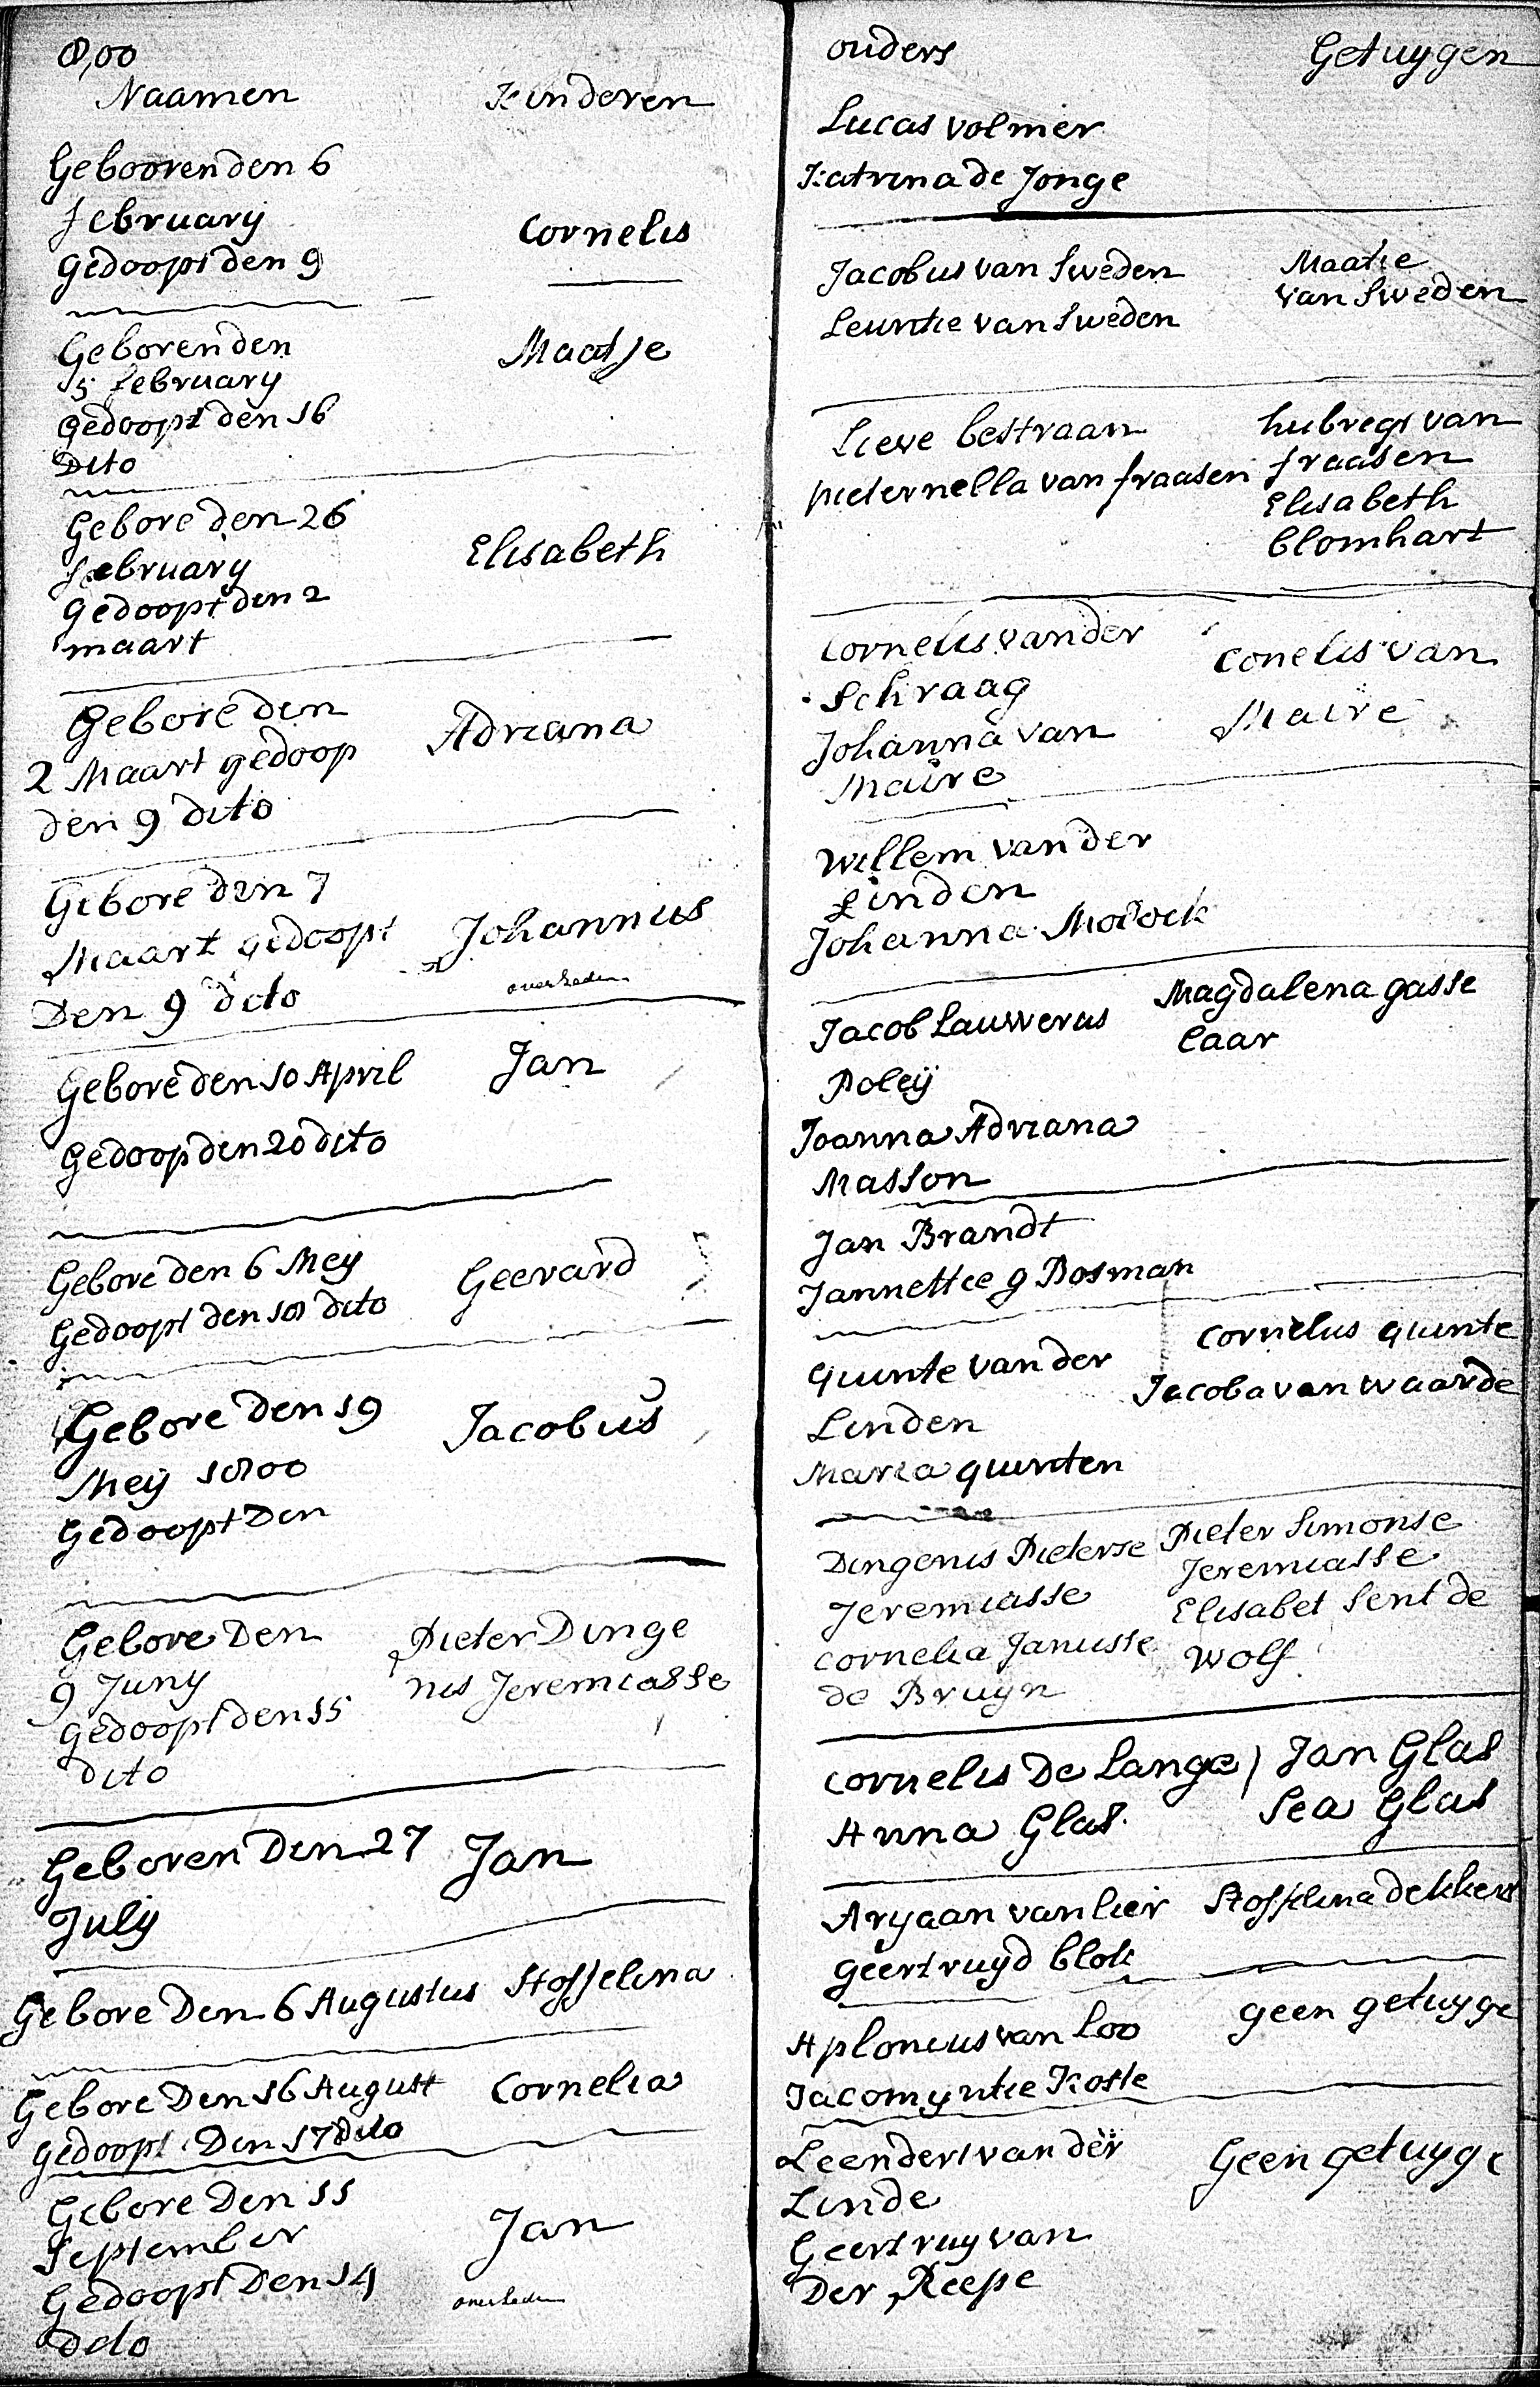 8,00
Naamen Kinderen
Gebooren den 6
february Cornelis
gedoopt den 9
Geborenden Maatje
15 february
gedoopt den 16
Dito
Gebore den 26
february Elisabeth
gedoopt den 2
maart
Gebore den Adriana
2 Maart gedoop
den 9 dito
Gebore den 7
Maart gedoopt Johannis
Den 9 dito overleden
Gebore den 10 April Jan
Gedoop den 20 dito
Gebore den 6 Meij Geerard
Gedoopt den 18 dito
Gebore den 19 Jacobus
Meij 1800
Gedoopt Den
Gebore Den Pieter Dinge
9 Juny nis Jeremiasse
gedoopt den 15
dito
Geboren Den 27 Jan
July
Gebore Den 6 Augustus Stoffelina
Gebore Den 16 August Cornelia
gedoopt Den 17 dito
Gebore Den 11
September Jan
Gedoopt Den 14 overleden
dito
ouders Getuygen
Lucas Volmer
Katrina de Jonge
Jacobus van Sweden Maatie
Leuntie van Sweden van Sweden
Lieve bestraan hubregt van
pieternella van fraasen fraasen
Elisabeth
blomhart
Cornelis van der Conelis van
Schraag Maire
Johanna van
Maire
Willem van der
Linden
Johanna
Jacob Lauwerus Magdalena gasse
Poleij laar
Joanna Adriana
Masson
Jan Brandt
Jannettie g Bosman
quinte van der Cornelus quinte
Linden Jacoba van waarde
Maria quinten
Dingenis Pieterse Pieter Simonse
Jeremiasse Jeremiasse
Cornelia Janusse Elisabet Sent de
de Bruyn Wolf
Cornelis De Lange Jan Glas
Anna Glas. Lea Glas
Aryaan van lier Stoffelina dekkers
geertruyd blok
Aplonius van Loo geen getuyge
Jacomyntie Koste
Leendert van der Geen getuyge
Linde
Geertruy van
Der Reepe